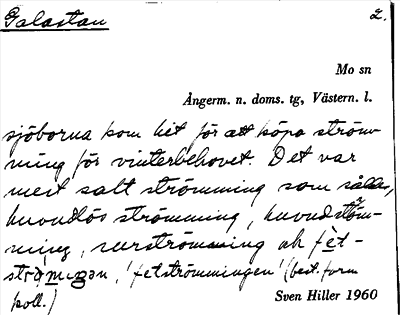 Galastan 2.
Mo sn
Ångerm. n. doms. tg, Västern. l.
sjöborna kom hit för att köpa ström-
ming för vinterbehovet. Det var
mest salt strömming som såldes,
huvudlös strömming, huvudström-
ming, surströmming ok fèt-
'fetströmmingen' (best. form
koll.)
Sven Hiller 1960